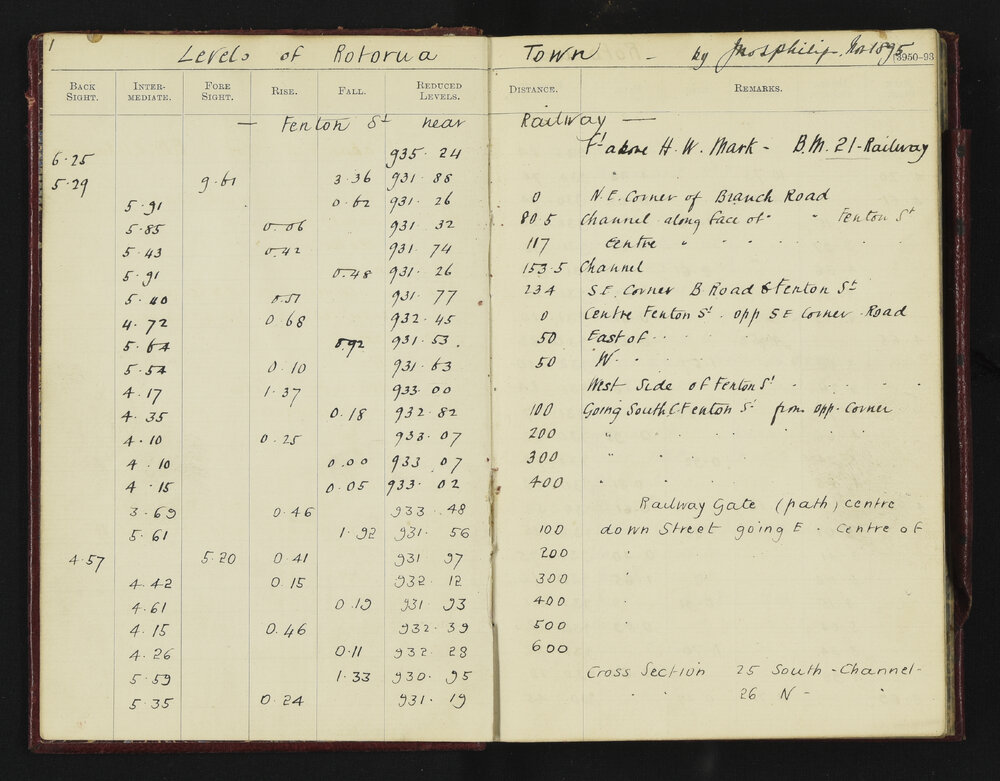 1
Levels of Rotorua Town - by Jno Philip. Nov 1895
13950-93
BACK SIGHT. INTER-MEDIATE. FORE SIGHT. RISE. FALL. REDUCED LEVELS. DISTANCE. REMARKS.
— Fenton St near Railway —
6.25 935.24 ft above H.W. Mark - B.M. 21 - Railway
5.29 9.61 3.36 931.88
5.91 0.62 931.26 0 N.E. Corner of Branch Road
5.85 0.06 931.32 80.5 Channel along face of " " Fenton St
5.43 0.42 931.74 117 Centre " " " " " "
5.91 0.48 931.26 153.5 Channel
5.40 0.51 931.77 234 S.E. Corner B Road & Fenton St
4.72 0.68 932.45 0 Centre Fenton St. opp S E Corner Road
5.64 0.92 931.53. 50 East of " "
5.54 0.10 931.63 50 W " "
4.17 1.37 933.00 West Side of Fenton St " " "
4.35 0.18 932.82 100 Going South, C Fenton St from opp. Corner
4.10 0.25 933.07 200 " " " " " "
4.10 0.00 933.07 300 "
4.15 0.05 933.02 400 "
3.69 0.46 933.48 Railway Gate (path) centre
5.61 1.92 931.56 100 down Street going E. Centre of
4.57 5.20 0.41 931.97 200 "
4.42 0.15 932.12 300 "
4.61 0.19 931.93 400 "
4.15 0.46 932.39 500
4.26 0.11 932.28 600
5.59 1.33 930.95 Cross Section 25 South - Channel -
5.35 0.24 931.19 " " 26 N - "